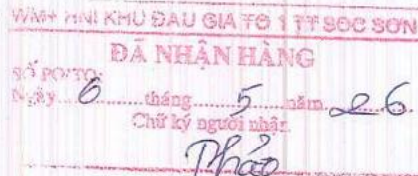 WM+ HNI KHU ĐẤU GIÁ TỔ 1 TT SÓC SƠN
ĐÃ NHẬN HÀNG
SỐ PO/TO:
Ngày 6 tháng 5 năm 26
Chữ ký người nhận
Thảo